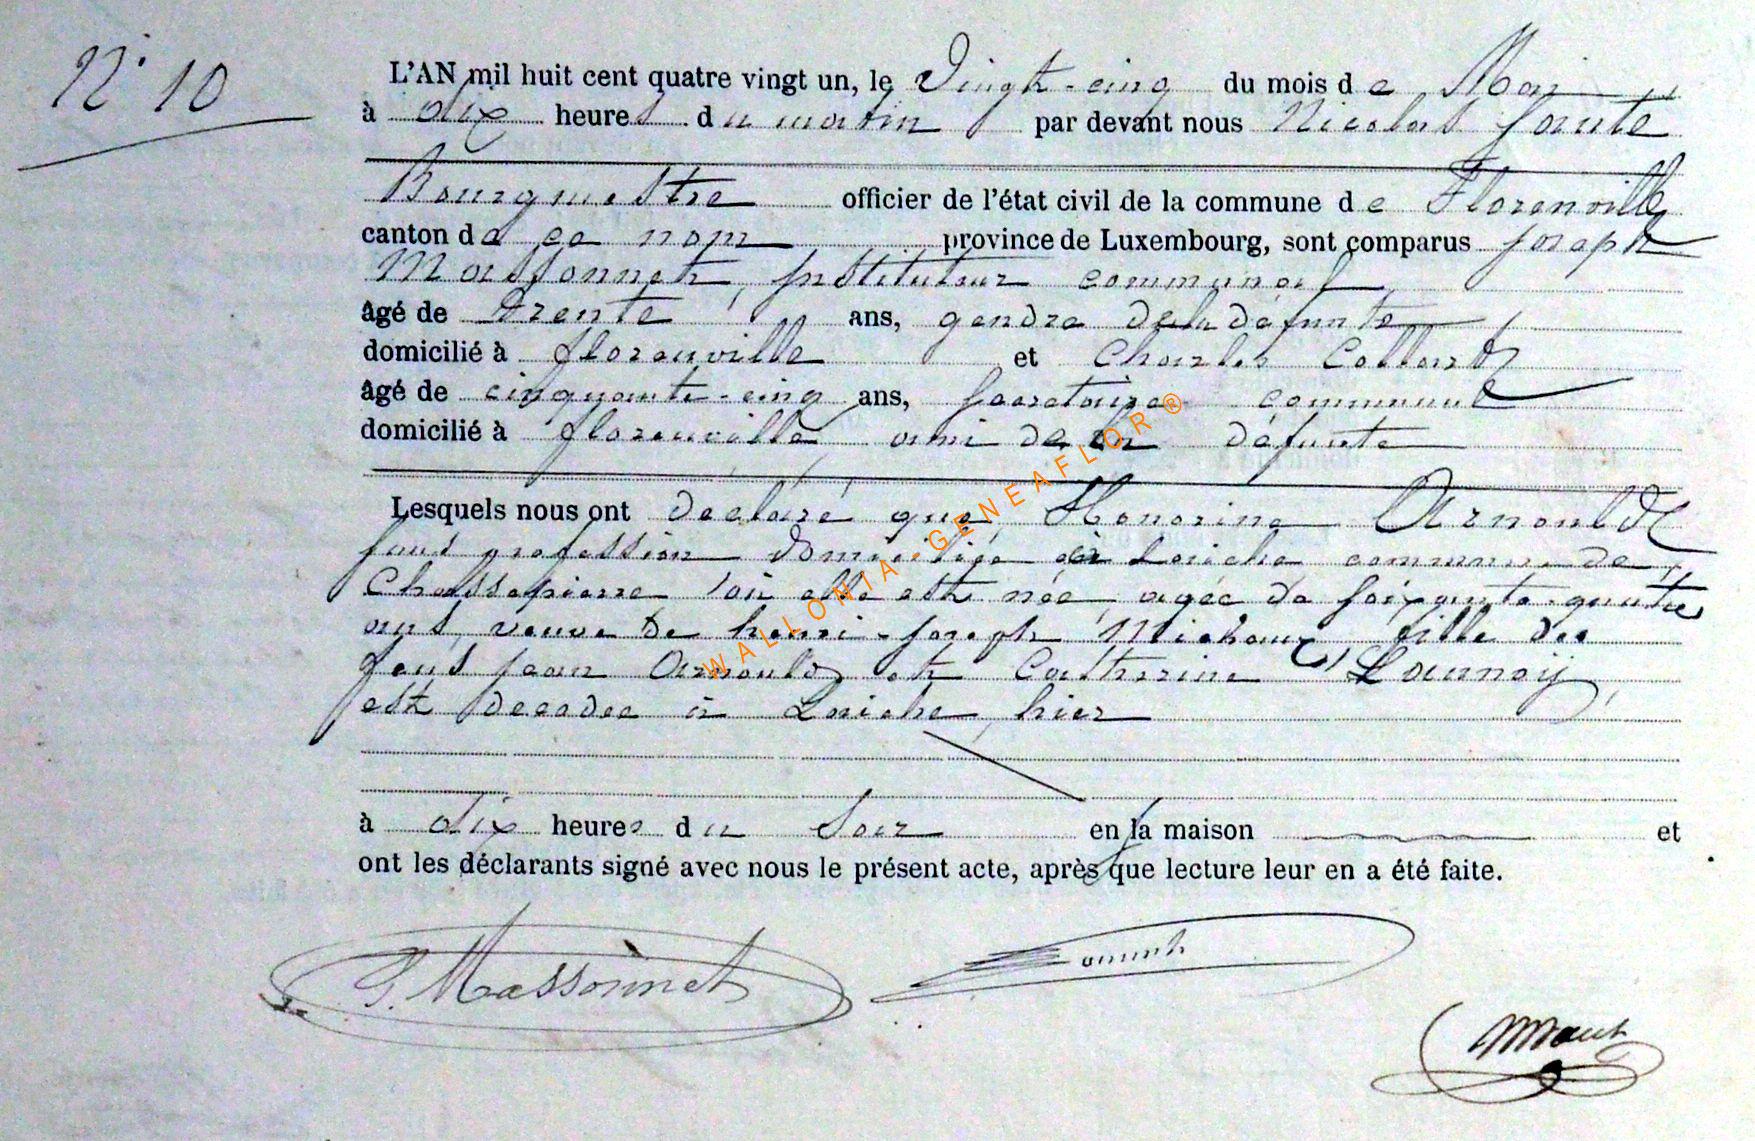 N° 10
L'AN mil huit cent quatre vingt un, le Vingt-cinq du mois de Mai
à dix heures du matin par devant nous Nicolas
Bourgmestre officier de l'état civil de la commune de Florenville
canton de ce nom province de Luxembourg, sont comparus Joseph
Massonnet, Instituteur communal
âgé de trente ans, gendre de la défunte
domicilié à florenville et Charles Collard
âgé de cinquante-cinq ans, Secretaire communal
domicilié à florenville, ami de la défunte
Lesquels nous ont déclaré que Honorine Arnould
sans profession domiciliée à Laiche commune de
Chassepierre où elle est née, agée de soixante-quatre
ans, veuve de henri-Joseph Michaux fille des
feus jean Arnould et Catherine Launoy,
est decedee à Laiche, hier
à dix heures du Soir en la maison et
ont les déclarants signé avec nous le présent acte, après que lecture leur en a été faite.
J. Massonnet
WALLONIA-GENEAFLOR®